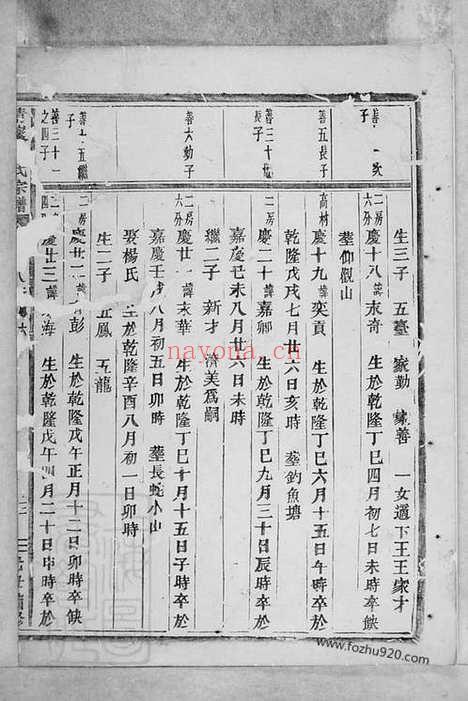 生三子 五臺 家勤 家善 一女適卞王王家才
子
二房六分 慶十八 諱永奇 生於乾隆丁巳四月初七日未時卒缺
塟仰觀山
善五長子
高材 慶十九 諱奕貢 生於乾隆丁巳六月十五日午時卒於
乾隆戊戌七月廿六日亥時 塟釣魚塘
善三十 長子
二房 慶二十 諱嘉卿 生於乾隆丁巳九月三十日辰時卒於
嘉慶己未八月廿六日未時
繼二子 新才 濟美爲嗣
善六幼子
二房六分 慶廿一 諱永華 生於乾隆丁巳十月十五日子時卒於
嘉慶壬戌八月初五日卯時 塟長蛇小山
娶楊氏 生於乾隆辛酉八月初一日卯時
生二子 五鳳 五龍
子
二房 慶廿二 諱 彭 生於乾隆戊午正月十二日卯時卒缺
善三十一之四子
慶廿三 諱 海 生於乾隆戊午四月二十日申時卒於
氏宗譜
nayona.cn
www.fozhu920.com